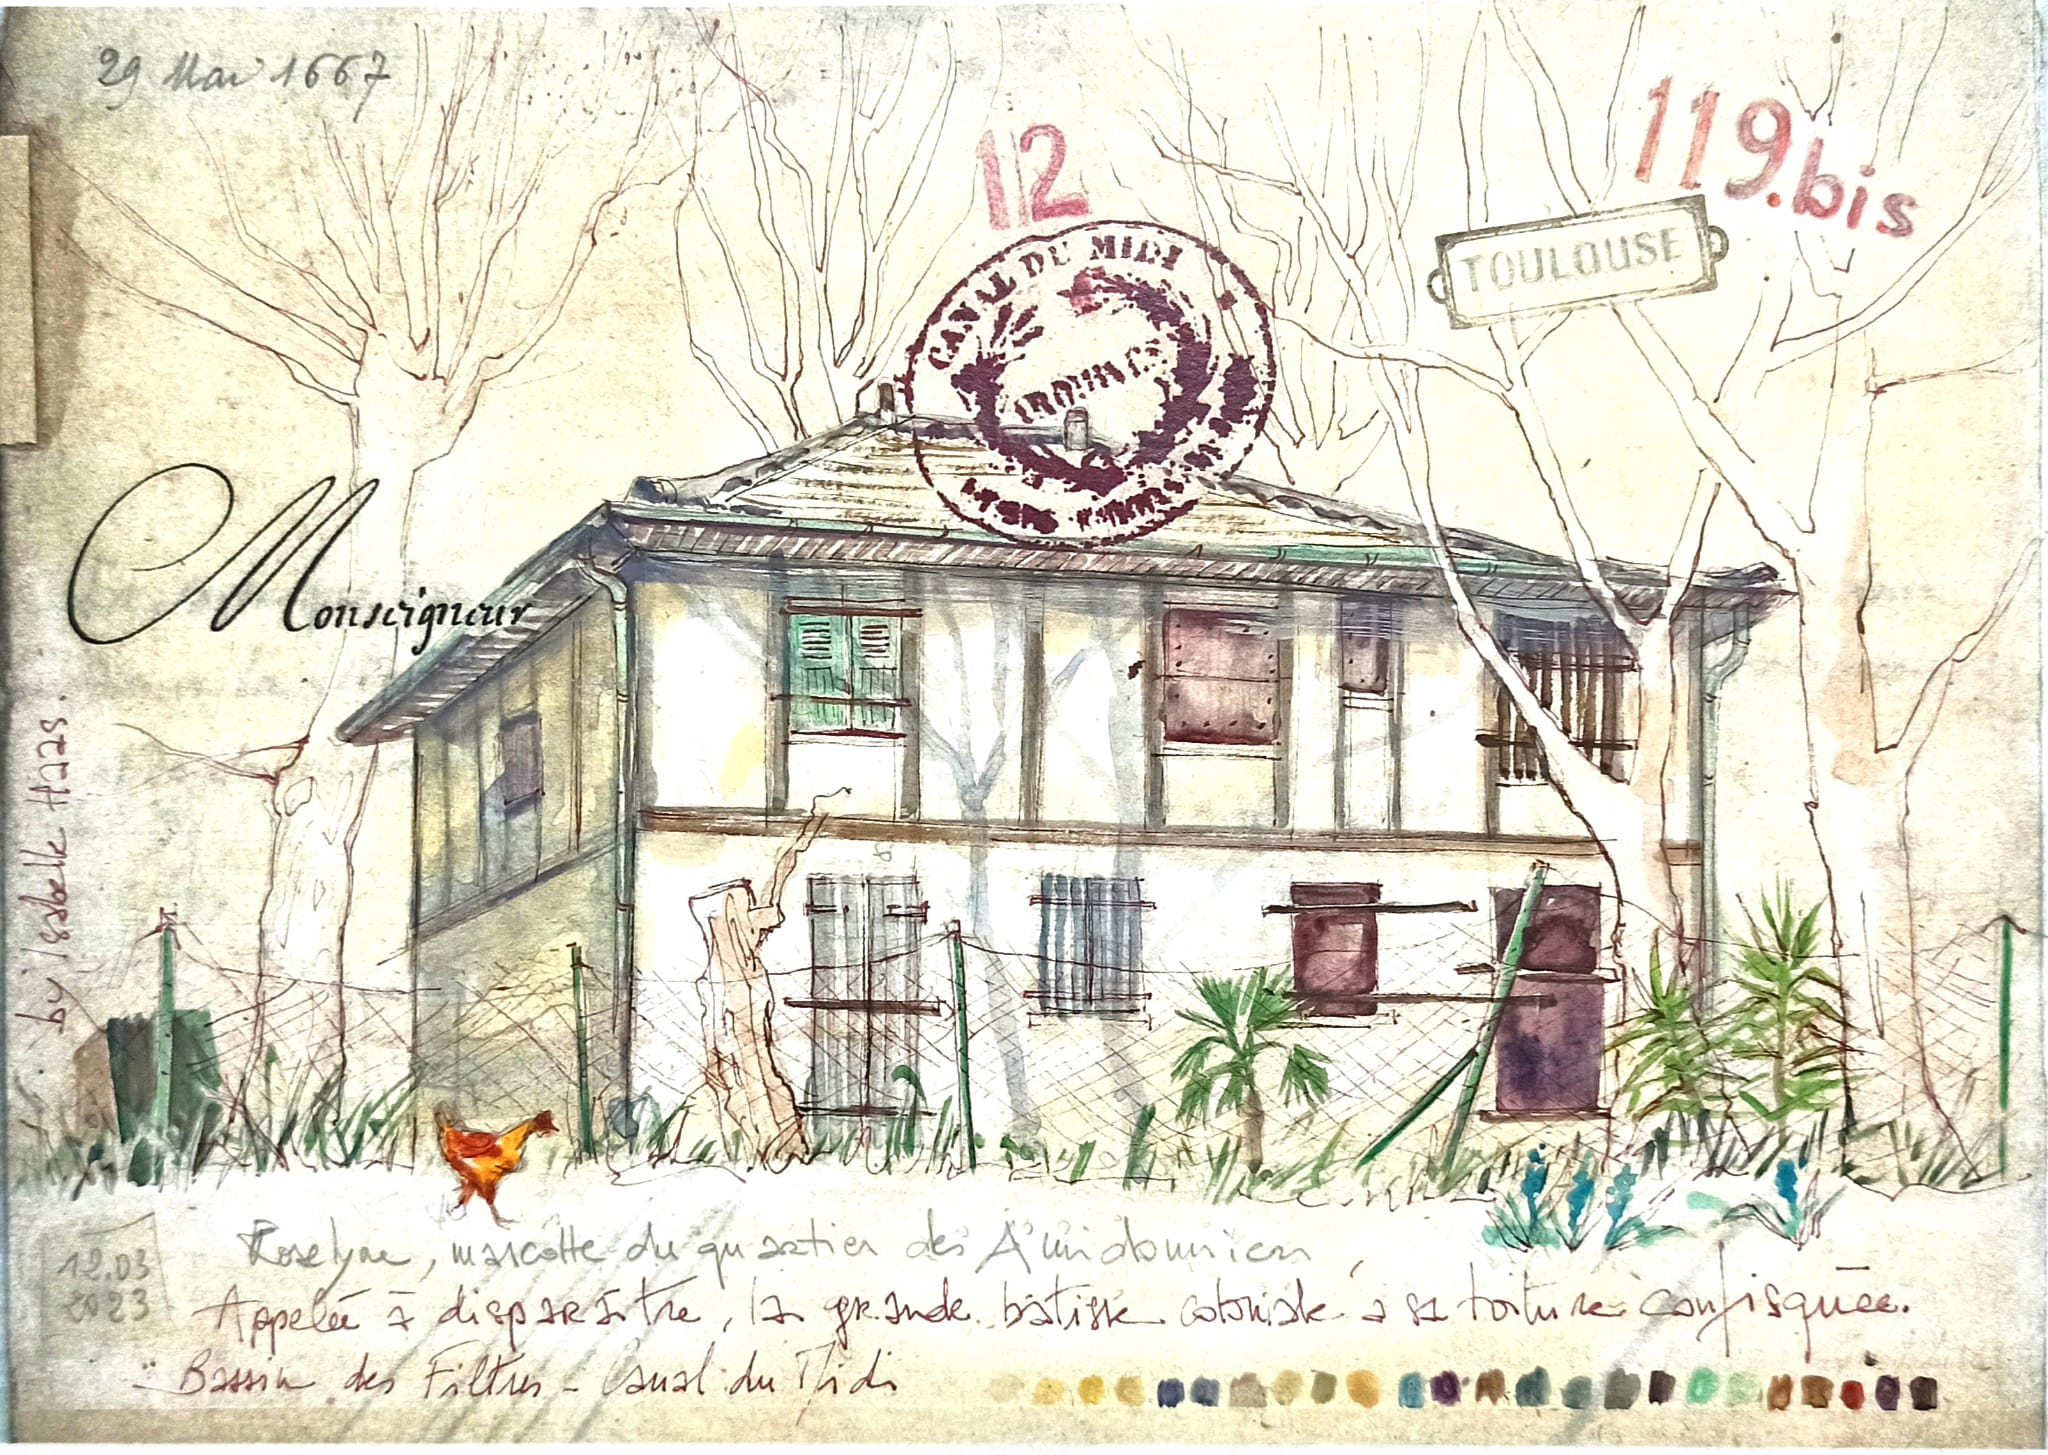 29 Mai 1667
12
119.bis
TOULOUSE
CANAL DU MIDI
Monseigneur
by Isabelle Haas.
12.03
2023
Roselyne, mascotte du quartier des Amidonniers
Appelée à disparaître, la grande bâtisse coloniale a sa toiture confisquée.
Bassin des Filtres - Canal du Midi